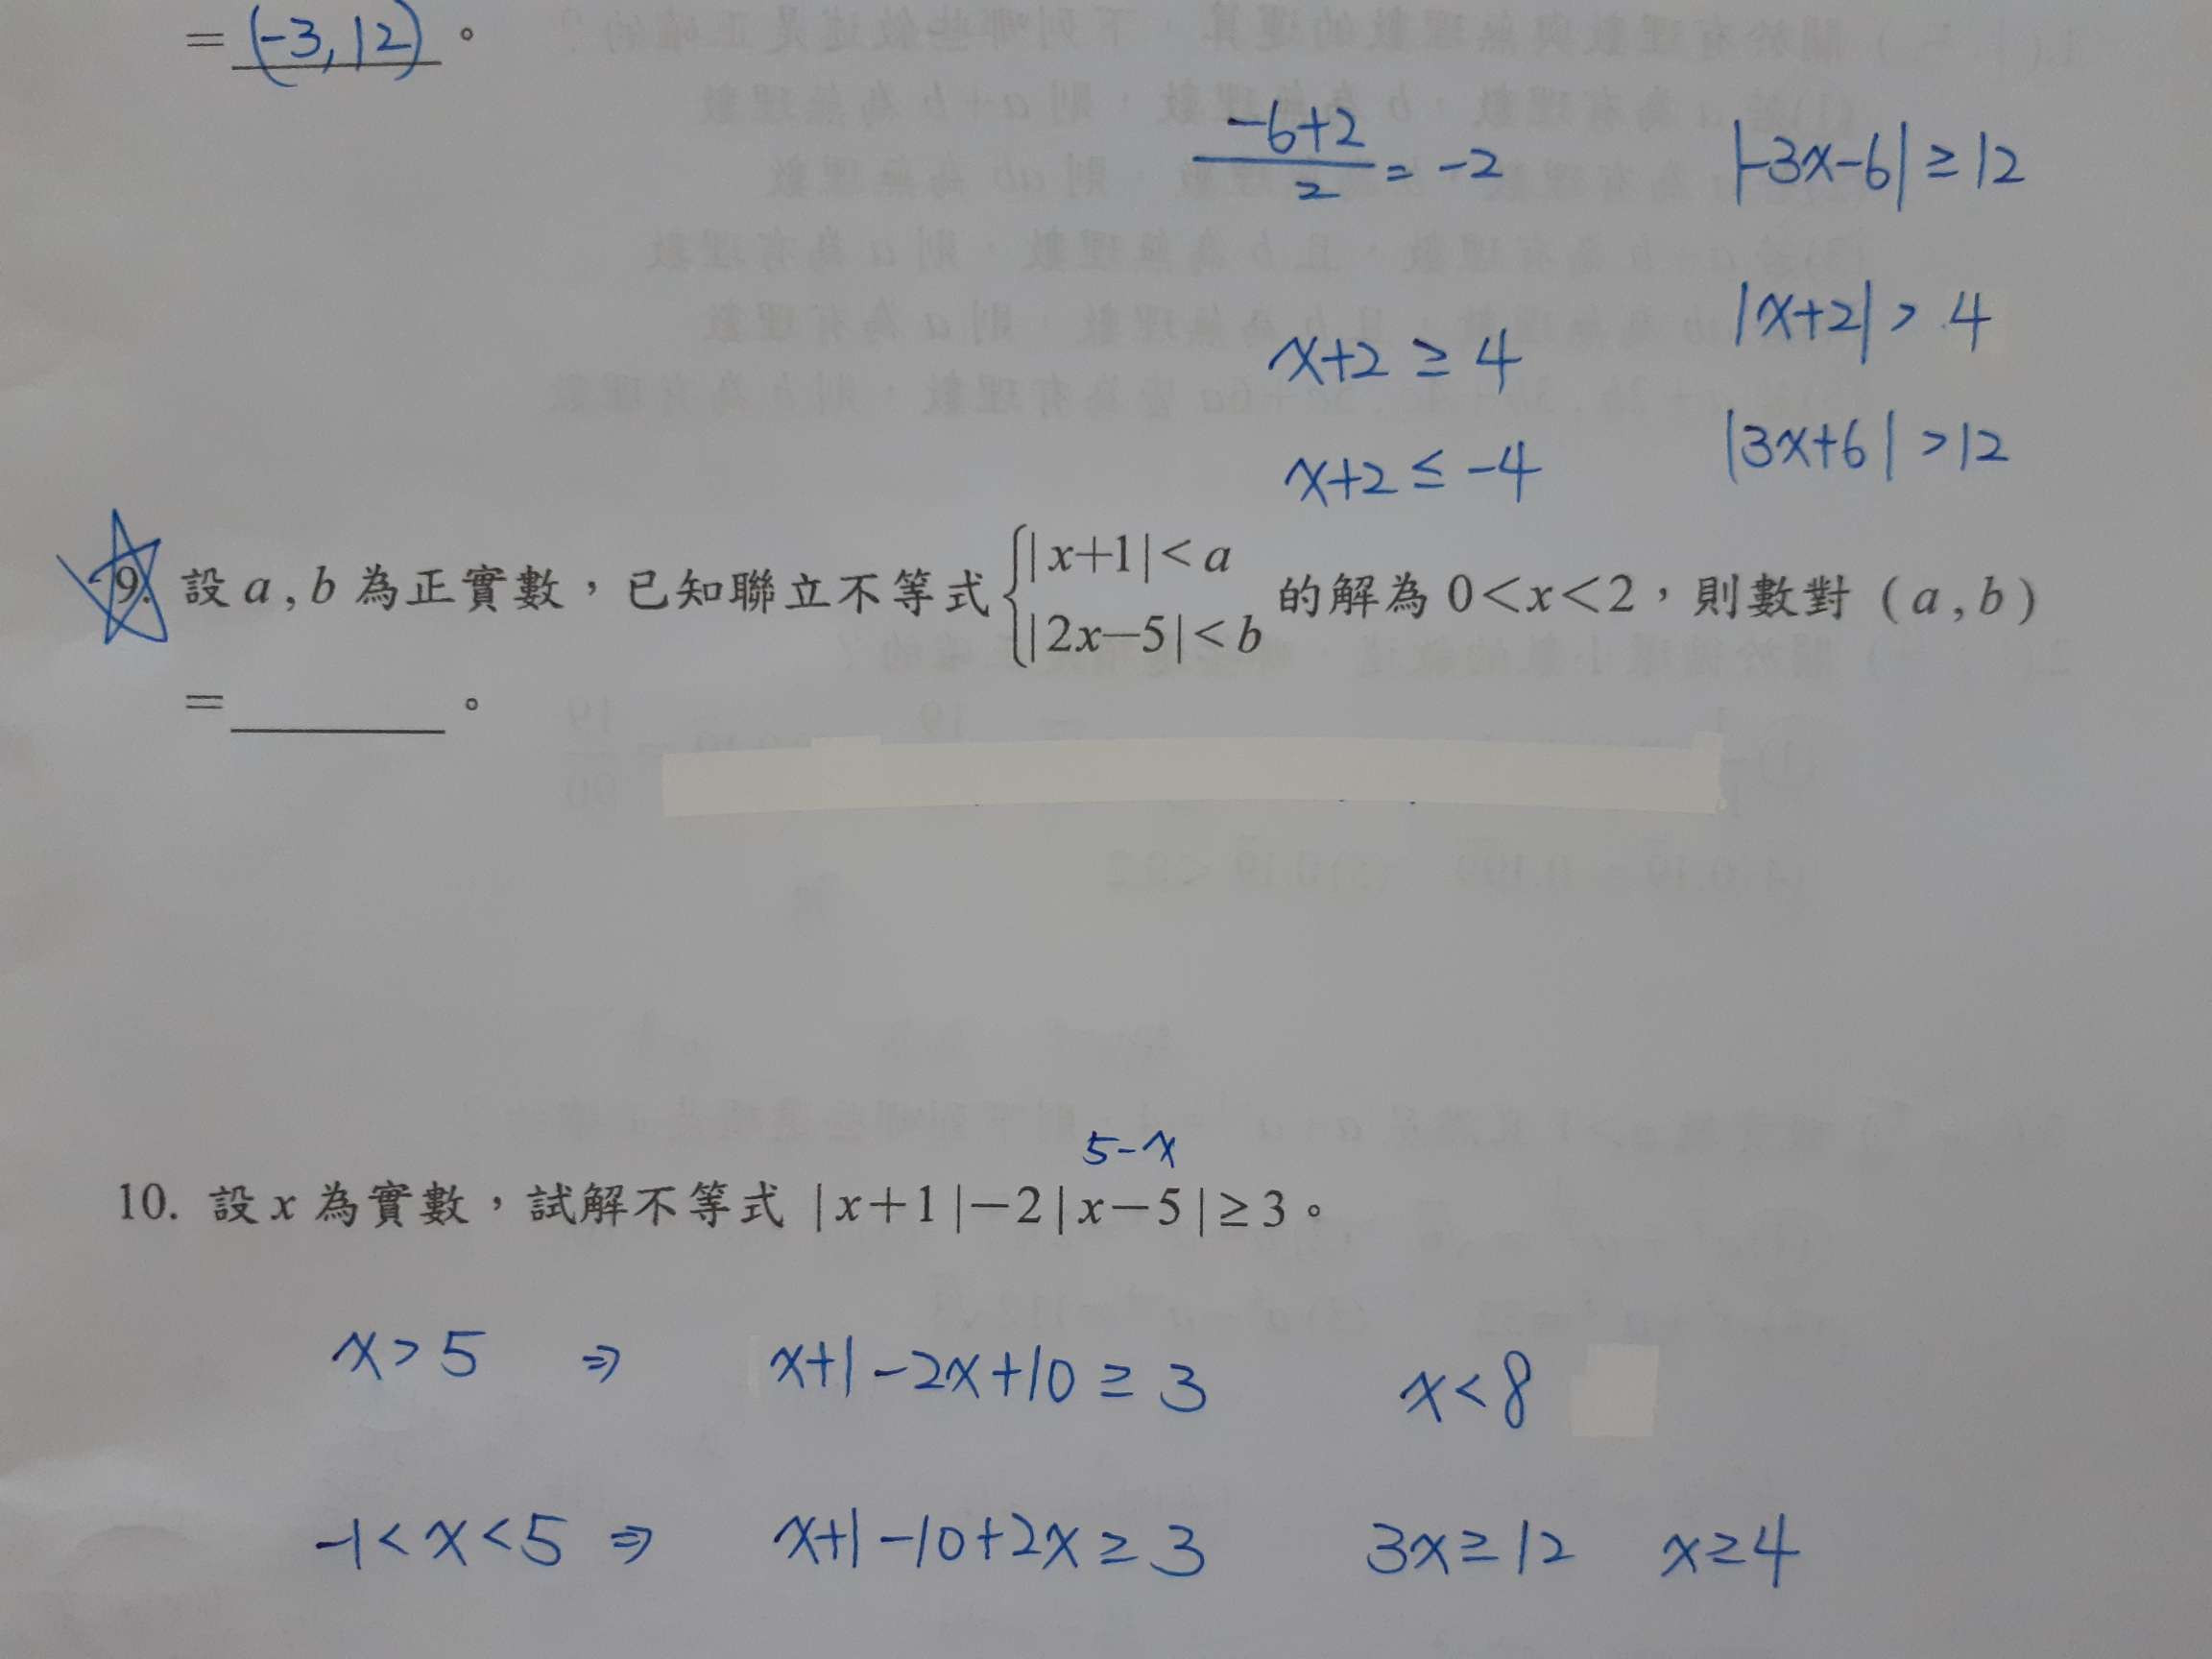 = (-3, 12) 。
-6+2/2 = -2
|-3x-6| ≥ 12
x+2 ≥ 4
|x+2| > 4
x+2 ≤ -4
|3x+6| > 12
9. 設 a , b 為正實數，已知聯立不等式 { |x+1| < a |2x-5| < b 的解為 0<x<2，則數對 ( a , b )
= 。
5-x
10. 設 x 為實數，試解不等式 |x+1|-2|x-5|≥3。
x > 5 ⇒ x+1-2x+10 ≥ 3 x < 8
-1 < x < 5 ⇒ x+1-10+2x ≥ 3 3x ≥ 12 x ≥ 4